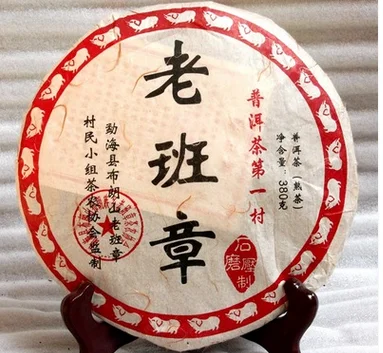 老班章
普洱茶第一村
普洱茶（熟茶）
净含量：380克
勐海县布朗山老班章
村民小组茶农协会监制
石磨壓制